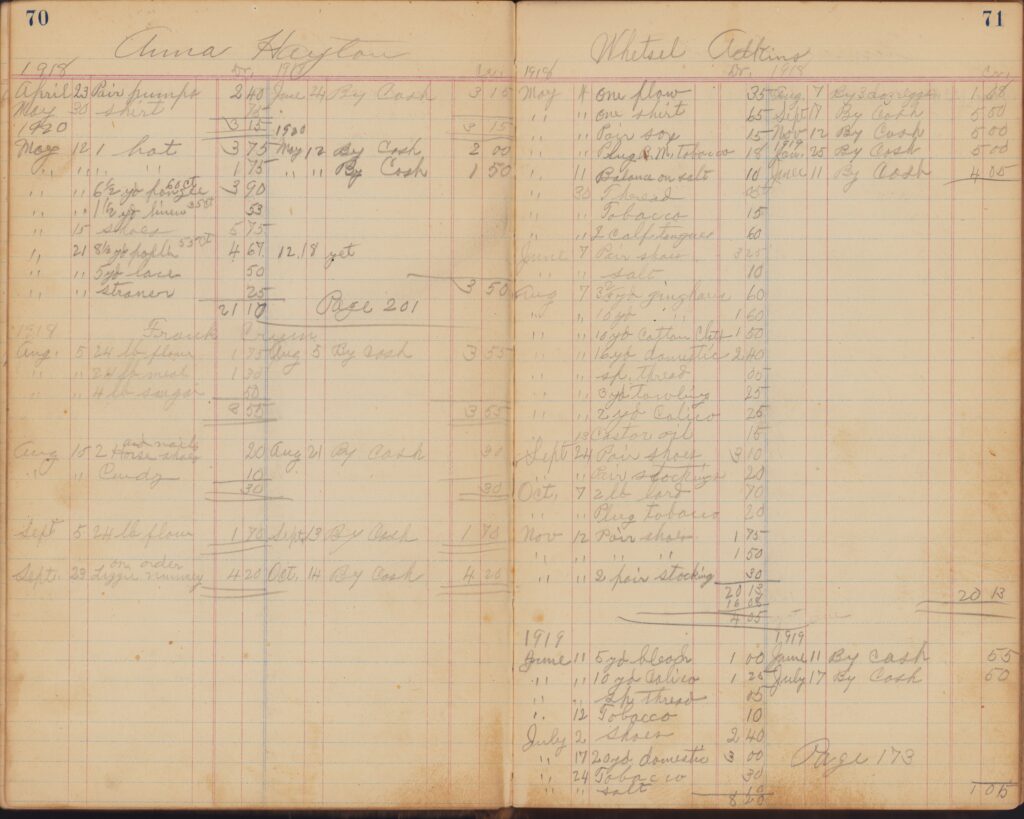 70
Anna Hayton
1918 Dr. 1918 Cr.
April 23 Pair pumps 2 40 June 24 By Cash 3 15
May 30 shirt 75
3 15 3 15
1920 1920
May 12 1 hat 3 75 May 12 By Cash 2 00
" " " " 1 75 " " By Cash 1 50
" " 6 1/2 yd pongee 60ct 3 90
" " 1 1/2 yd linen 35ct 53
" 15 shoes 5 75
" 21 8 1/2 yd poplin 55ct 4 67 12.18 yet
" " 5 yd lace 50
3 50
" " straner 25
21 10 Page 201
1918 Frank
Aug. 5 24 lb flour 1 75 Aug 5 By Cash 3 55
" " 24 lb meal 1 30
" " 4 lb sugar 50
3 55 3 55
Aug 15 2 Horse shoes and nails 20 Aug 21 By Cash 30
" " Candy 10
30 30
Sept 5 24 lb flour 1 70 Sept 13 By Cash 1 70
Sept. 23 on order Lizzie 4 20 Oct. 14 By Cash 4 20
71
Whetsel Adkins
1918 Dr. 1918 Cr.
May 11 One plow 35 Aug 7 By 3 doz eggs 1 08
" " One shirt 65 Sept 17 By Cash 5 00
" " Pair sox 15 Nov 12 By Cash 5 00
1919
" " Plug R.M. Tobacco 18 Jan. 25 By Cash 5 00
" 11 Balance on salt 10 June 11 By Cash 4 05
" 30 Thread 05
" " Tobacco 15
" " 2 Calf tongues 60
June 7 Pair shoes 3 25
" " salt 10
Aug 7 yd gingham 60
" " 10 yd " " 1 60
" " 10 yd Cotton Cloth 1 50
" " 16 yd domestic 2 40
" " sp. thread 05
" " 3 yd towling 25
" " 2 yd Calico 25
" 13 Castor oil 15
Sept 24 Pair shoes 3 10
" " Pair stockings 20
Oct. 7 2 lb lard 70
" " Plug tobacco 20
Nov 12 Pair shoes 1 75
" " " " 1 50
" " 2 pair stocking 30
20 13 20 13
16 08
4 05
1919 1919
June 11 5 yd bleach 1 00 June 11 By Cash 55
" " 10 yd Calico 1 25 July 17 By Cash 50
" " Sp. thread 05
" 12 Tobacco 10
July 2 Shoes 2 40
" 17 20 yd domestic 3 00 Page 173
" 24 Tobacco 30
" " salt 10 1 05
8 20